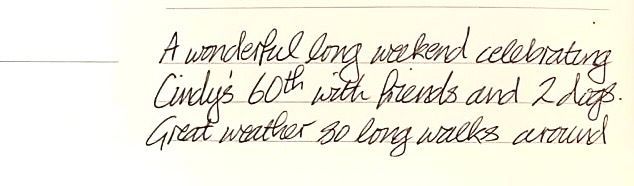 A wonderful long weekend celebrating
Cindy's 60th with friends and 2 dogs.
Great weather so long walks around